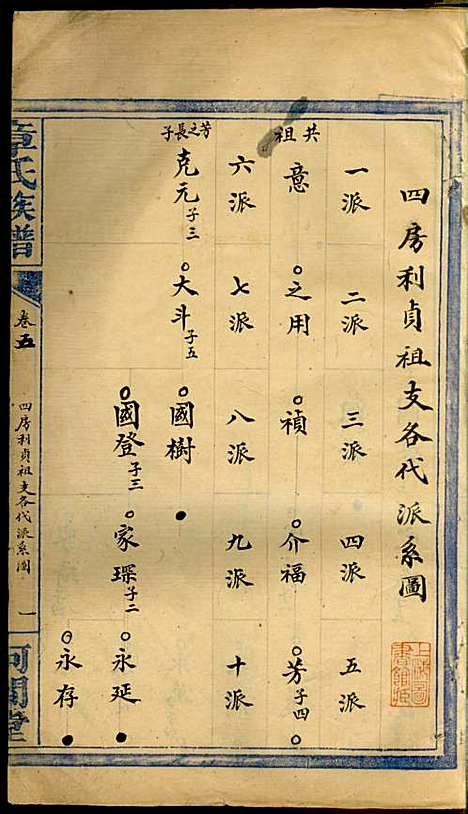 四房利貞祖支各代派系圖
一派 二派 三派 四派 五派
共祖
意 之用 禎 介福 芳 子四
六派 七派 八派 九派 十派
芳之長子
克元 子三 大斗 子五 國樹
國登 子三 家琛 子二 永延
永存
章氏族譜
卷五
四房利貞祖支各代派系圖
一
河間堂